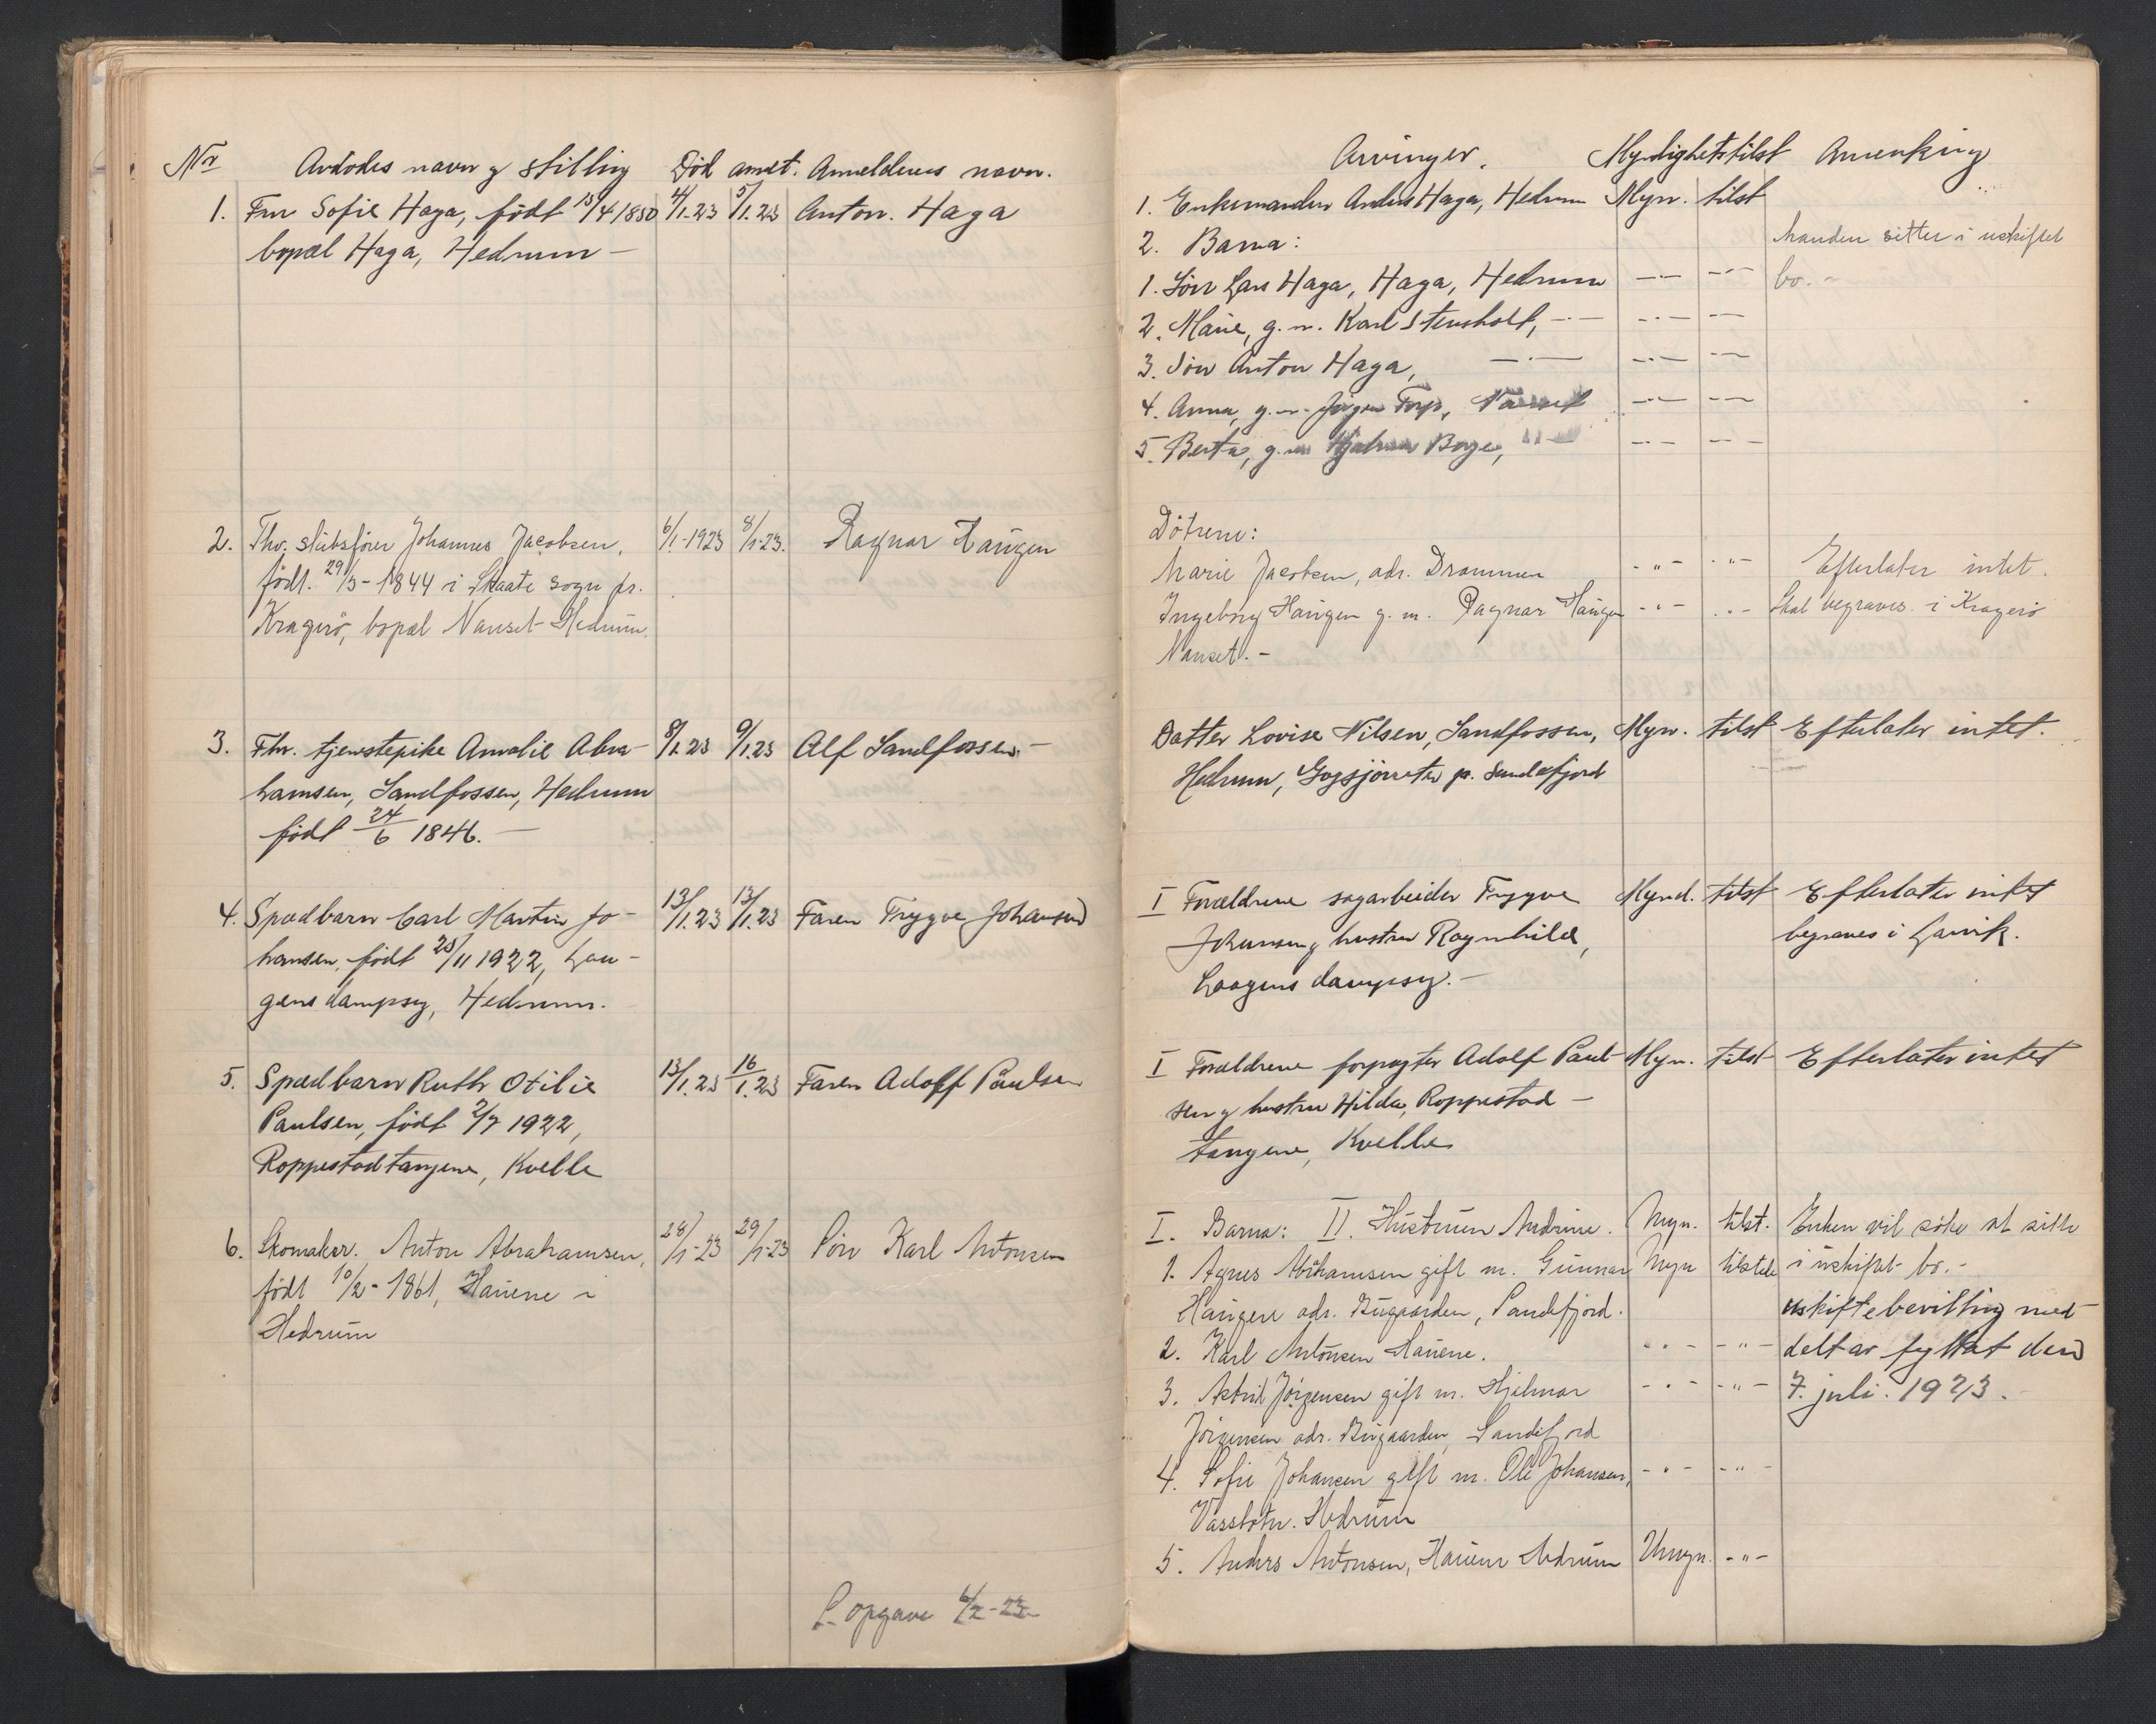 Nr Avdødes navn og stilling Død anmt. Anmelderens navn.
1. Fru Sofie Haga, født 15/4 1850 4/1.23 5/1.23 Anton Haga
bopæl Haga, Hedrum –
2. Fhv. skibsfører Johannes Jacobsen, 6/1-1923 8/1-23. Ragnar Haugen
født. 29/3-1844 i Skaate sogn pr.
Kragerø, bopæl Nanset Hedrum.
3. Fhv. tjenestepike Amalie Abra- 8/1.23 9/1.23 Alf Sandfossen. –
hamsen, Sandfossen, Hedrum
født 24/6 1846. –
4. Spædbarn Carl Martin Jo- 13/1.23 13/1.23 Faren Trygve Johansen
hansen, født 25/11 1922, Lau-
gens dampsg, Hedrum.
5. Spædbarn Ruth Otilie 13/1.23 16/1.23 Faren Adolf Paulsen
Paulsen, født 2/7 1922,
Roppestadtangene, Kvelle
6. Skomaker. Anton Abrahamsen, 28/1-23 29/1-23 Søn Karl Antonsen
født 10/2-1861, Hauene i
Hedrum
opgave 6/2-23
Arvinger. Myndighetstilst Anmerkning
1. Enkemanden Anders Haga, Hedrum Myn. tilst
2. Barna: Manden sitter i uskiftet
1. Søn Lars Haga, Haga, Hedrum –·– –·– bo. –
2. Marie, g. m. Karl Stensholt, –·– –·– –·–
3. Søn Anton Haga, –·– –·– –·–
4. Anna, g. m. Jørgen Torp, Nanset –·– –·–
5. Berta, g. m. Hjalmar Borge, –"– –·– –·–
Døtrene:
Marie Jacobsen, adr. Drammen –"– –"– Efterlater intet.
Ingeborg Haugen g. m. Ragnar Haugen –"– –"– Skal begraves i Kragerø
Nanset. –
Datter Lovise Nilsen, Sandfossen, Myn. tilst Efterlater intet.
Hedrum, Gogsjøsæter p. Sandefjord
I Forældrene sagarbeider Trygve Mynd. tilst Efterlater intet
Johansen og hustru Ragnhild, begraves i Larvik.
Laagens dampsg. –
I Forældrene forpagter Adolf Paul- Myn. tilst Efterlater intet
sen og hustru Hilda, Roppestad –
tangene, Kvelle
I. Barna: II. Hustruen Andrine. Myn. tilst. Enken vil søke at sitte
1. Agnes Abrahamsen gift m. Gunnar Myn tilstede i uskiftet bo. –
Haugen adr. Bugaarden, Sandefjord. uskiftebevilling med-
2. Karl Antonsen Hauene. –"– –"– delt av fylket den
3. Astrid Jørgensen gift m. Hjalmar –"– –"– 7. juli. 1923.
Jørgensen adr. Bugaarden, Sandefjord
4. Sofie Johansen gift m. Ole Johansen, –"– –"–
Vassbotn. Hedrum
5. Anders Antonsen, Hauene Hedrum Umyn. –"–